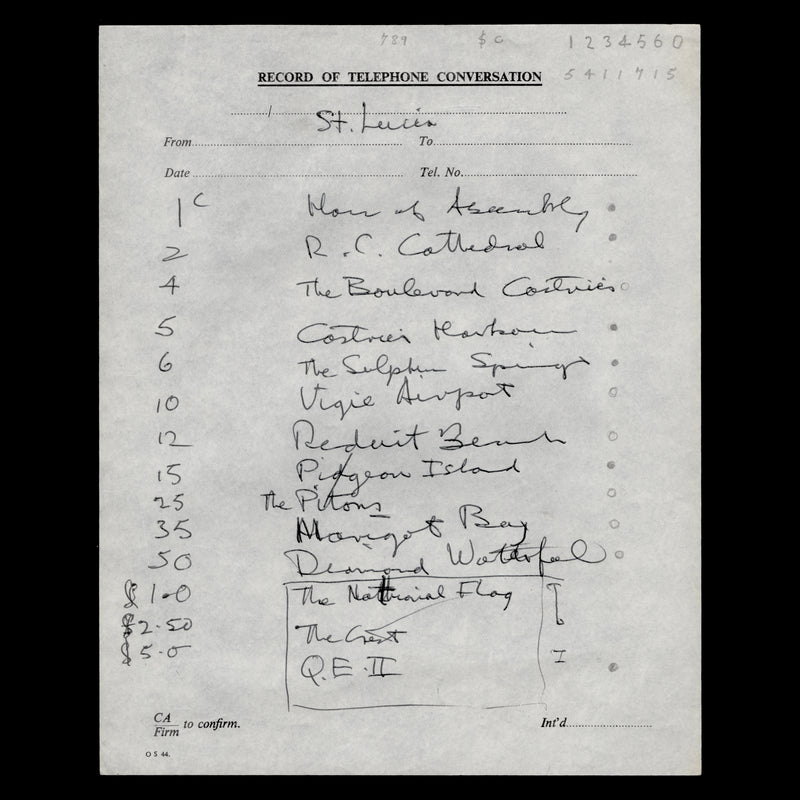 789 $ c 1 2 3 4 5 6 0
RECORD OF TELEPHONE CONVERSATION 5 4 1 1 7 1 5
St. Lucia
From To
Date Tel. No.
1 c House of Assembly
2 R.C. Cathedral
4 The Boulevard Castries
5 Castries Harbour
6 The Sulphur Springs
10 Vigie Airport
12 Reduit Beach
15 Pidgeon Island
25 The Pitons
35 Marigot Bay
50 Diamond Waterfall
$ 1.0 The National Flag
$ 2.50 The Crest
$ 5.0 Q.E.II
CA
Firm to confirm. Int'd
O S 44.